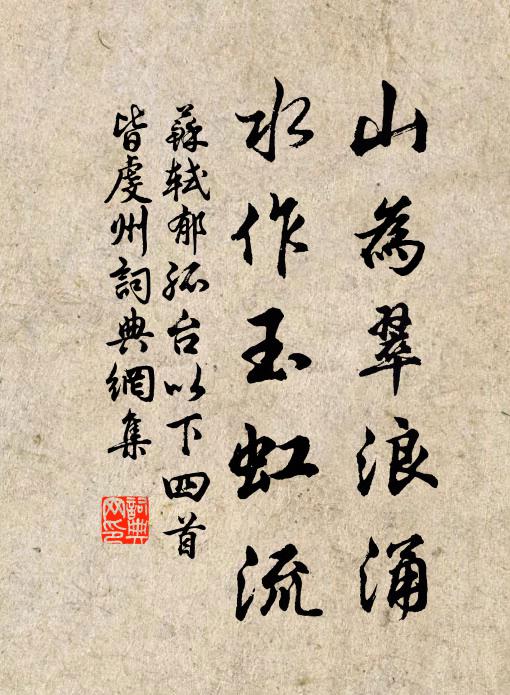 山為翠浪涌
水作玉虹流
蘇軾郁孤台以下四首
皆虔州詞典網集
詞典
网印